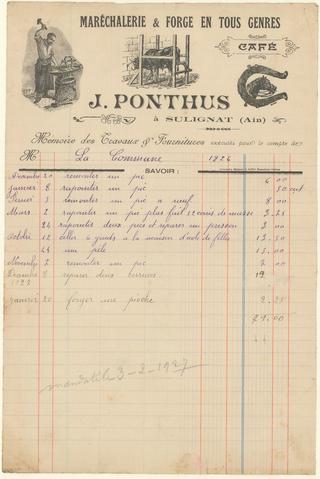 MARÉCHALERIE & FORGE EN TOUS GENRES
CAFÉ
J. PONTHUS
à SULIGNAT (Ain)
Mémoire des Travaux & Fournitures exécutés pour le compte de
M La Commune 1926
SAVOIR:
Décembre 20 remonter un pic 6 00
Janvier 8 rapointer un pic 50 cent
Février 3 remonter un pic a neuf 8 00
Mars 2 rapointer un pic plus fait 12 de masse 3 25
24 rapointer deux pics et réparer un 3 00
Octobre 12 a la maison d'école de filles 13 50
24 un pêle 15 00
Novembre 2 remonter un pic 2 00
Décembre 8 réparer deux 19
1927
Janvier 20 forger une pioche
79.00
mandaté le 3-2-1927